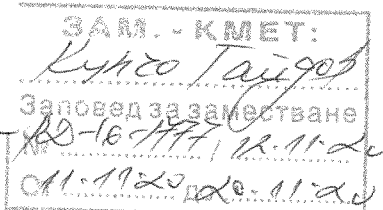 ЗАМ. - КМЕТ:
Кунчо Гайдов
Заповед за заместване
№ / 12.11.20
От 11.11.20 до 20.11.20